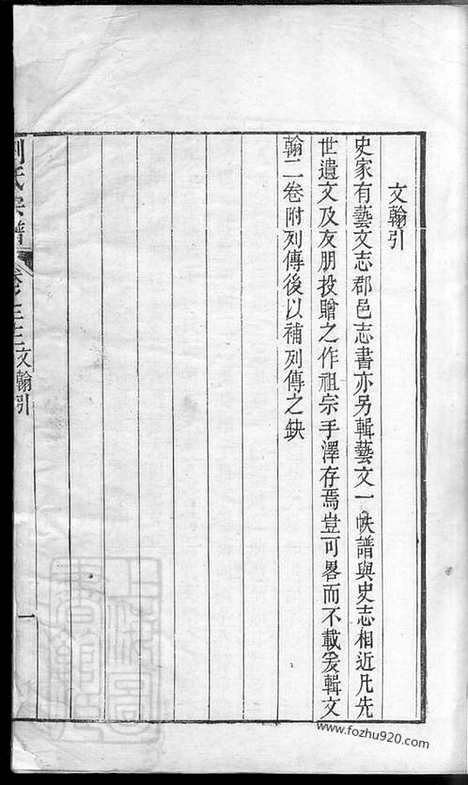 文翰引
史家有藝文志郡邑志書亦另輯藝文一帙譜與史志相近凡先
世遺文及友朋投贈之作祖宗手澤存焉豈可畧而不載爰輯文
翰二卷附列傳後以補列傳之缺
劉氏宗譜 卷之三 文翰引 一
www.fozhu920.com